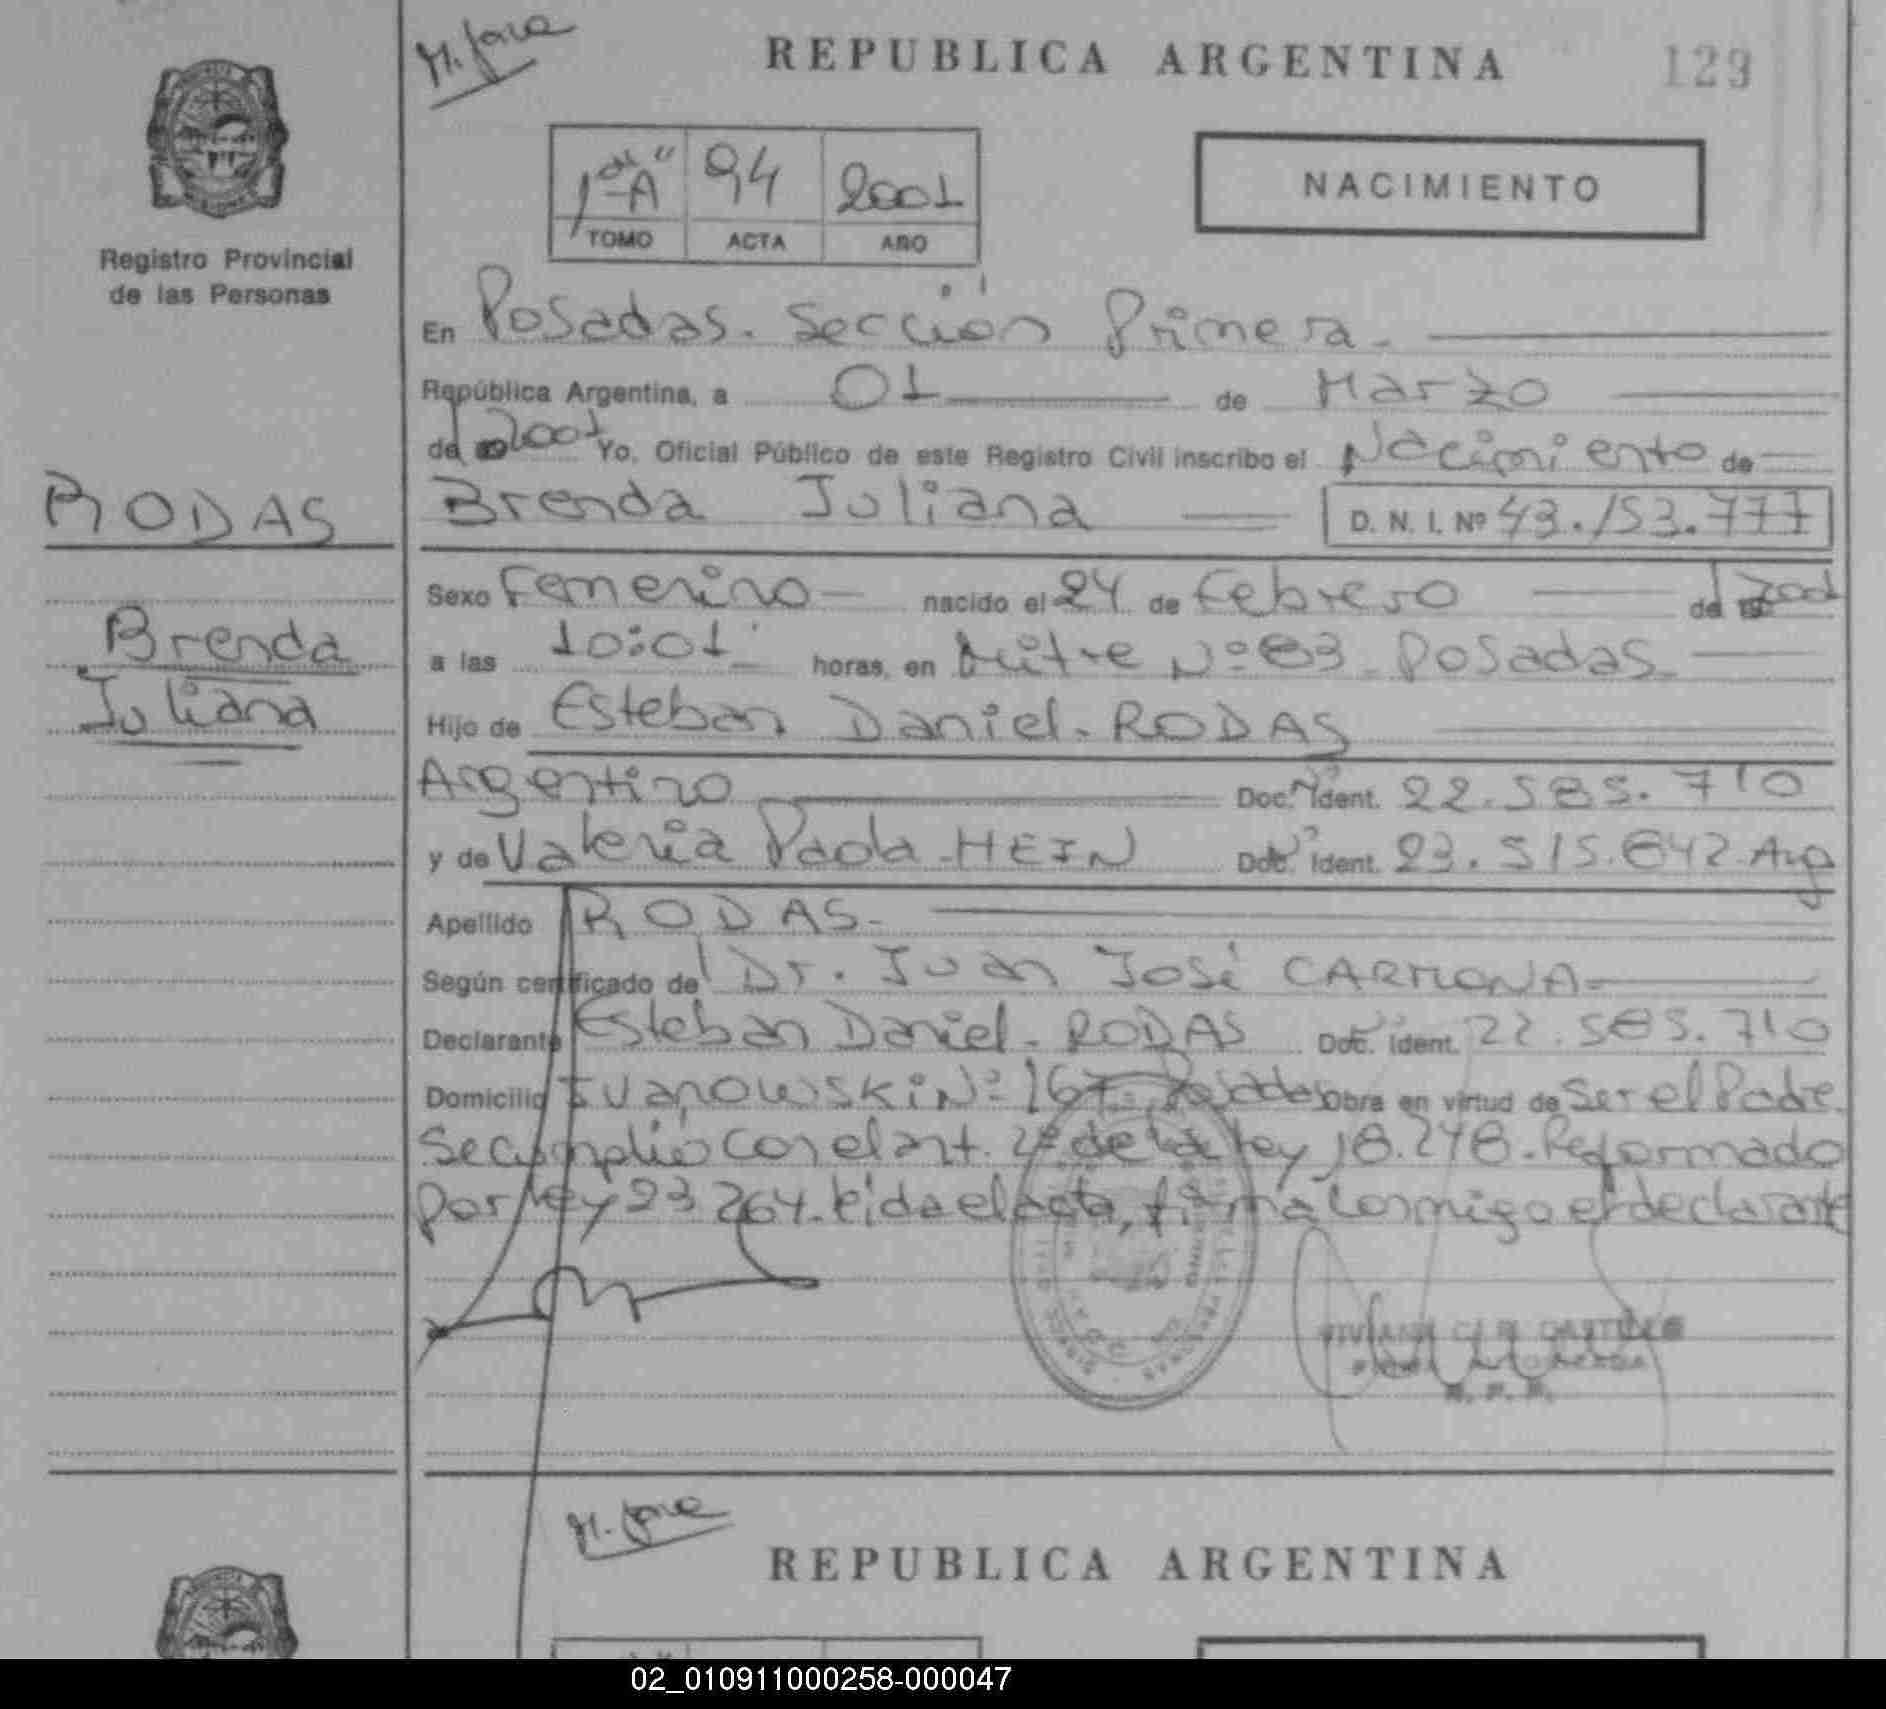 M. Jara
REPUBLICA ARGENTINA
129
1º "A" 94 2001
TOMO ACTA AÑO
NACIMIENTO
Registro Provincial
de las Personas
En Posadas. Sección Primera.
República Argentina, a 01 de Marzo
de 2001 Yo, Oficial Público de este Registro Civil inscribo el Nacimiento de
RODAS
Brenda Juliana D. N. I. Nº 43.153.777
Sexo Femenino nacido el 24 de Febrero de 2001
Brenda
Juliana
a las 10:01 horas, en Mitre Nº 83 - Posadas
Hijo de Esteban Daniel - RODAS
Argentino Doc. Ident. 22.585.710
y de Valeria Paola - HEIN Doc. Ident. 23.515.642 Arg
Apellido RODAS -
Según certificado de Dr. Juan José CARMONA -
Declarante Esteban Daniel - RODAS Doc. Ident. 22.585.710
Domicilio Ivanowski Nº 167 - Posadas Obra en virtud de Ser el Padre.
Se cumplió con el art. 2º de la ley 18.248 - Reformado
por ley 23.264. Leida el acta, firma conmigo el declarante
R. P. P.
M. Jara
REPUBLICA ARGENTINA
02_010911000258-000047